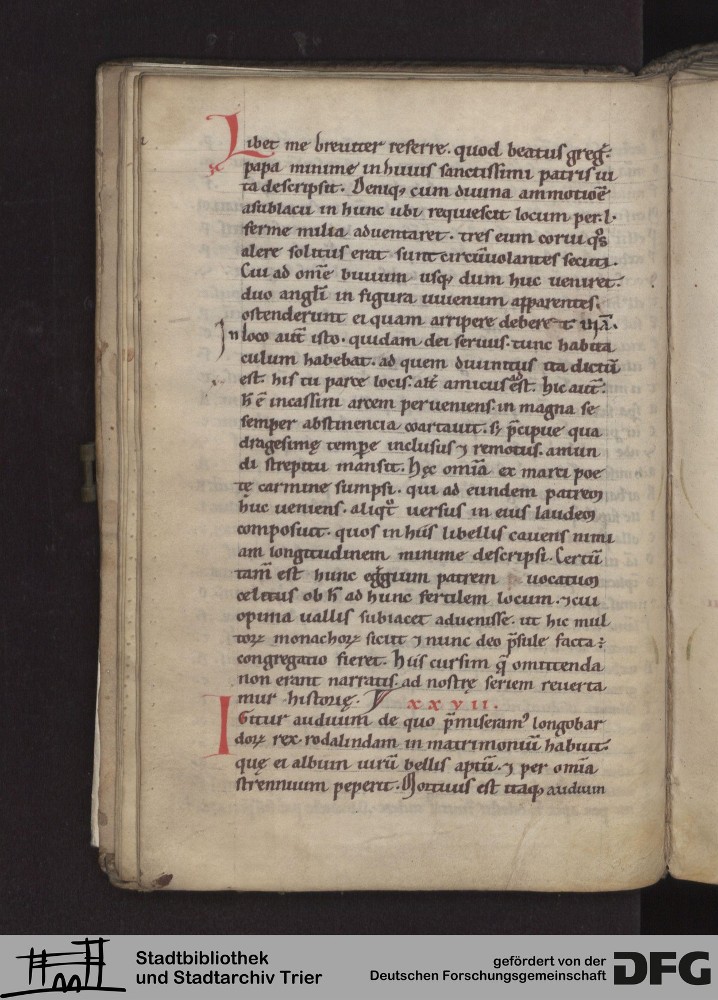 Libet me breuiter referre. quod beatus greg̅.
papa minime in huius sanctissimi patris ui
ta descripsit. Deniq; cum diuina ammotio̅e
asublacu in hunc ubi requiescit locum per .l.
ferme milia aduentaret. tres eum corui q̊s
alere solitus erat sunt circu̅uolantes secuti.
Cui ad om̅e biuium usq; dum huc ueniret.
duo angl̅i in figura iuuenum apparentes.
ostenderunt ei quam arripere deberet uia̅.
In loco aut̅ isto. quidam dei seruus tunc habita
culum habebat. ad quem diuinitus ita dictu̅
est. his tu parce locis. alt̅ amicus adest. hic aut̅.
h̅ e̅ in cassini arcem perueniens. in magna se
semper abstinencia coartauit. s; p̅cipue qua
dragesimę tempr̅e inclusus ⁊ remotus. a mun
di strepitu mansit. Hęc om̅ia ex marci poe
tę carmine sumpsi. qui ad eundem patrem
huc ueniens. aliqt̊ uersus in eius laudem
composuit. quos in hiis libellis cauens nimi
am longitudinem minime descripsi. Certu̅
tam̅ est hunc eg̅gium patrem uocatum
celitus ob h̅ ad hunc fertilem locum. ⁊ cui
opima uallis subiacet aduenisse. ut hic mul
toꝝ monachoꝝ sicut ⁊ nunc deo p̅sule facta:
congregatio fieret. Hiis cursim q̅ omittenda
non erant narratis. ad nostrę seriem reuerta
mur historię. xxvii.
Igitur auduum de quo p̅miseram᾽ longobar
doꝝ rex. rodalindam in matrimoniu̅ habuit.
quę ei albuin uiru̅ bellis aptu̅. ⁊ per om̅ia
strennuum peperit. Mortuus est itaq; auduum
Stadtbibliothek
und Stadtarchiv Trier
gefördert von der
Deutschen Forschungsgemeinschaft
DFG